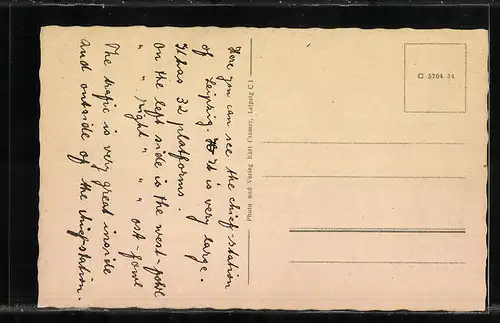 Here you can see the chief-station
of Leipzig. It is very large.
It has 32 platforms.
On the left side is the west-
" " right " " " ost-
The trafic is very great inside
and outside of the chief-station.
Photo und Verlag Kurt Cramer, Leipzig C 1
C 5704 34